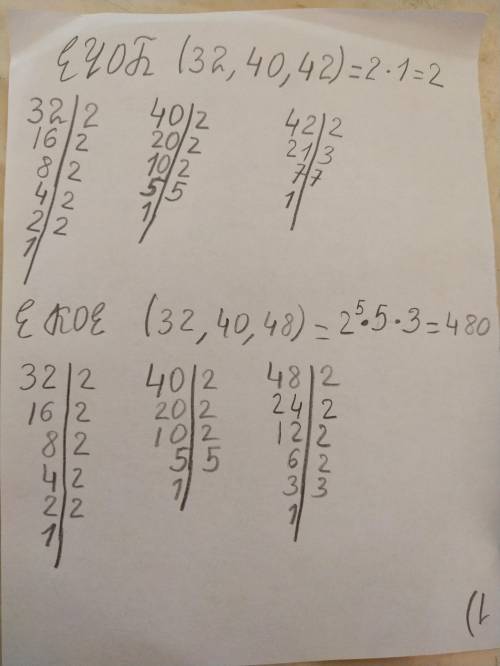 ЕҮОБ (32, 40, 42) = 2 · 1 = 2
32 | 2 40 | 2 42 | 2
16 | 2 20 | 2 21 | 3
8 | 2 10 | 2 7 | 7
4 | 2 5 | 5 1 |
2 | 2 1 |
1 |
ЕКОЕ (32, 40, 48) = 2⁵ · 5 · 3 = 480
32 | 2 40 | 2 48 | 2
16 | 2 20 | 2 24 | 2
8 | 2 10 | 2 12 | 2
4 | 2 5 | 5 6 | 2
2 | 2 1 | 3 | 3
1 | 1 |